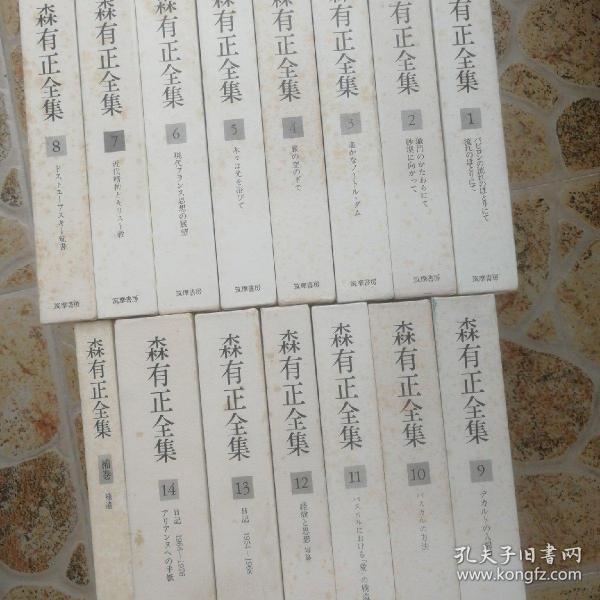 森有正全集
1
バビロンの流れのほとりにて
流れのほとりにて
森有正全集
2
城門のかたわらにて
砂漠に向かって
筑摩書房
森有正全集
3
遙かなノートル・ダム
筑摩書房
森有正全集
4
旅の空の下で
筑摩書房
森有正全集
5
木々は光を浴びて
筑摩書房
森有正全集
6
現代フランス思想の展望
筑摩書房
森有正全集
7
近代精神とキリスト教
筑摩書房
森有正全集
8
ドストエーフスキー覚書
筑摩書房
筑摩書房
森有正全集
9
デカルトの人間
森有正全集
10
パスカルの方法
森有正全集
11
パスカルにおける「愛」の構造
森有正全集
12
経験と思想
森有正全集
13
日記
森有正全集
14
日記
アリアンヌへの手紙
森有正全集
補巻
孔夫子旧书网
www.kongfz.com